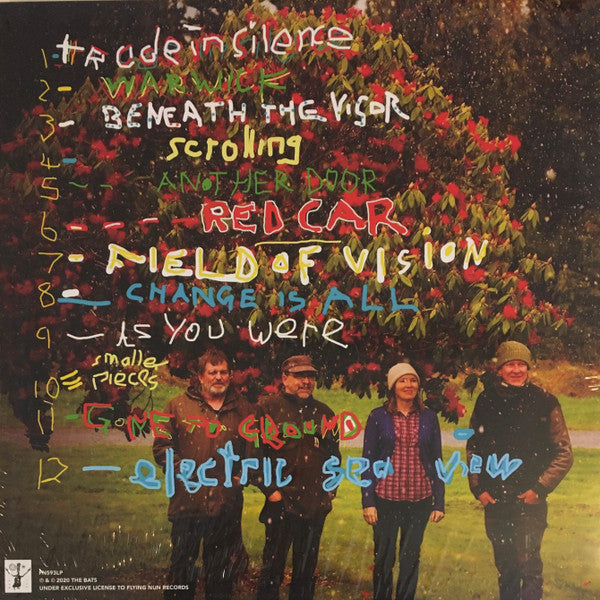 1 - tRade in silence
2 - WARWICK
3 - BENEATH THE VISOR
4 - scrolling
5 - - ANOTHER DOOR
6 - - - - RED CAR
7 - FIELD OF VISION
8 - CHANGE IS ALL
9 - As YOU Were
10 = smaller pieces
11 - GONE TO GROUND
12 - electric sea view
FN593LP
℗ & © 2020 THE BATS
UNDER EXCLUSIVE LICENSE TO FLYING NUN RECORDS